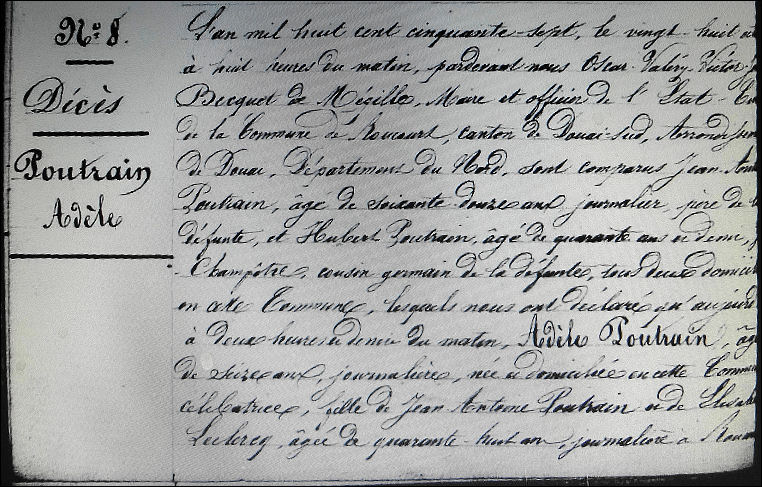 N° 8.
Décès
Poutrain
Adèle
L'an mil huit cent cinquante-sept, le vingt-huit
à huit heures du matin, pardevant nous Oscar Valéry Victor
Becquet de Mégille, Maire et officier de l'Etat-
de la Commune de Roucourt, canton de Douai-Sud,
de Douai, Département du Nord, sont comparus Jean
Poutrain, âgé de soixante douze ans journalier, père de
défunte, et Hubert Poutrain, âgé de quarante ans et demi,
Champêtre, cousin germain de la défunte, tous deux
en cette Commune, lesquels nous ont déclaré
à deux heures et demie du matin, Adèle Poutrain,
de seize ans, journalière, née et domiciliée en cette
célibatrice, fille de Jean Antoine Poutrain et de
Leclercq, âgée de quarante-huit ans, journalière à